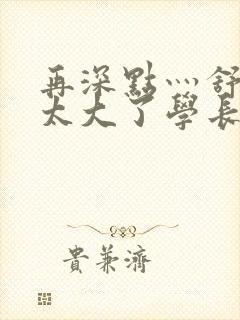 再深點灬舒
太大了學長
貴兼濟